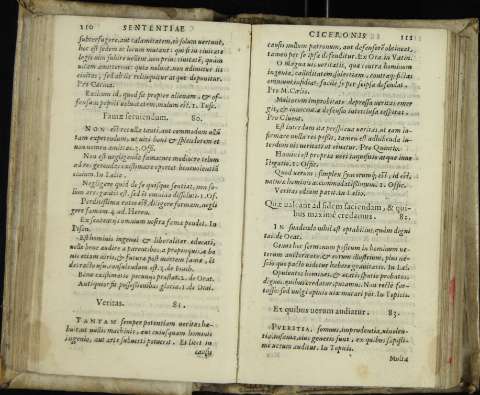 110 SENTENTIAE
subterfugere, aut calamitatem, eò solum vertunt,
hoc est sedem ac locum mutant: qui si in civitate
legis vim subire vellent, non prius civitatē, quàm
vitam amitterent: quia nolunt, non adimitur iis
civitas, sed ab iis relinquitur atque deponitur.
Pro Cæcina.
Exilium id, quod se propter alienam, & of-
fensam populi voluntatem, malum est. 5. Tusc.
Famæ serviendum. 80.
NON est recusa
tam expetendum, ut viri boni & splendorem et
nomen amittas. 3. Offi.
Nec est negligenda fama: nec mediocre telum
ad res gerendas existimare oportet benevolentiā
civium. In Lælio.
Negligere quid de se quisque sentiat, non so-
lùm arrogantis est, sed et omnino dissoluti. 1. Of.
Perditissima ratio est, diligere famam, negli
gere famam. 4. ad Heren.
Ex senatus, omnium nostra fama pendet. In
Pison.
Est hominis ingenui & liberaliter educati,
velle bene audire a parentibus, a propinquis, a bo
nis etiam viris, & futura post mortem fama,
3. de finib.
Bene existimatio pecuniæ præstat. 2. de Orat.
Antiquior sit possessionibus gloria. 2. de Orat.
Veritas. 81.
TANTAM semper potentiam veritas ha-
buit, ut nullis machinis, aut cuiusquam hominis
ingenio, aut arte subverti potuerit. Et licet in
causis
CICERONIS 111
causis nullum patronum, aut defensorē obtineat,
tamen per se ipsa defenditur. Ex Orat. in Vatin.
O magna vis veritatis, quæ contra hominum
ingenia, calliditatem, solertiam, contraque fictas
omnium insidias, facile se per se ipsa defendat.
Pro M. Cælio.
Multorum improbitate depressa veritas emer-
git, & innocentiæ defensio interclusa respirat.
Pro Cluent.
Est interdum ita perspicua veritas, ut eam in-
firmare nulla res possit, tamen est adhibenda in-
terdum vis veritati, ut eruatur. Pro Quintio.
Hominis est propria veri inquisitio atque inve-
stigatio. 1. Offic.
Quod verum, simplex, sincerumque est, id est,
naturæ hominis accommodatissimum. 1. Offic.
Veritas odium parit. In Lælio.
Quæ valeant ad fidem faciendam, & qui-
bus maximè credamus. 82.
IN suadendo nihil est optabilius, quàm digni
tas. de Orat.
Gravis hæc sermonum positum in hominum ve-
terum autoritate, & eorum illustrium, plus ne-
scio quo pacto videtur habere gravitatis. In Læl.
Opulentos homines, & ætate
dignos, quibus credatur, putamus. Non rectè for-
tasse: sed vulgi opinio vix mutari potest. In Topicis.
Ex quibus verum audiatur. 83.
PUERITIA, somnus, imprudentia, vinolen-
tia, insania, aius generis sunt, ex quibus sæpissi-
mè verum auditur. In Topicis.
Multa